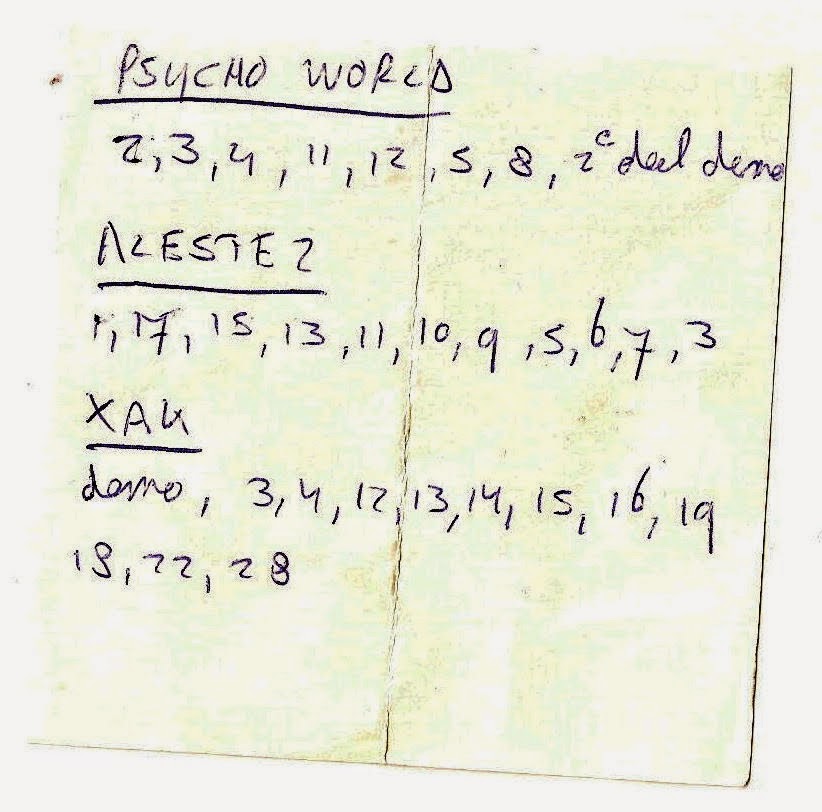 PSYCHO WORLD
2, 3, 4, 11, 12, 5, 8, 2ª del demo
ALESTE 2
1, 17, 15, 13, 11, 10, 9, 5, 6, 7, 3
XAK
demo, 3, 4, 12, 13, 14, 15, 16, 19
18, 22, 28